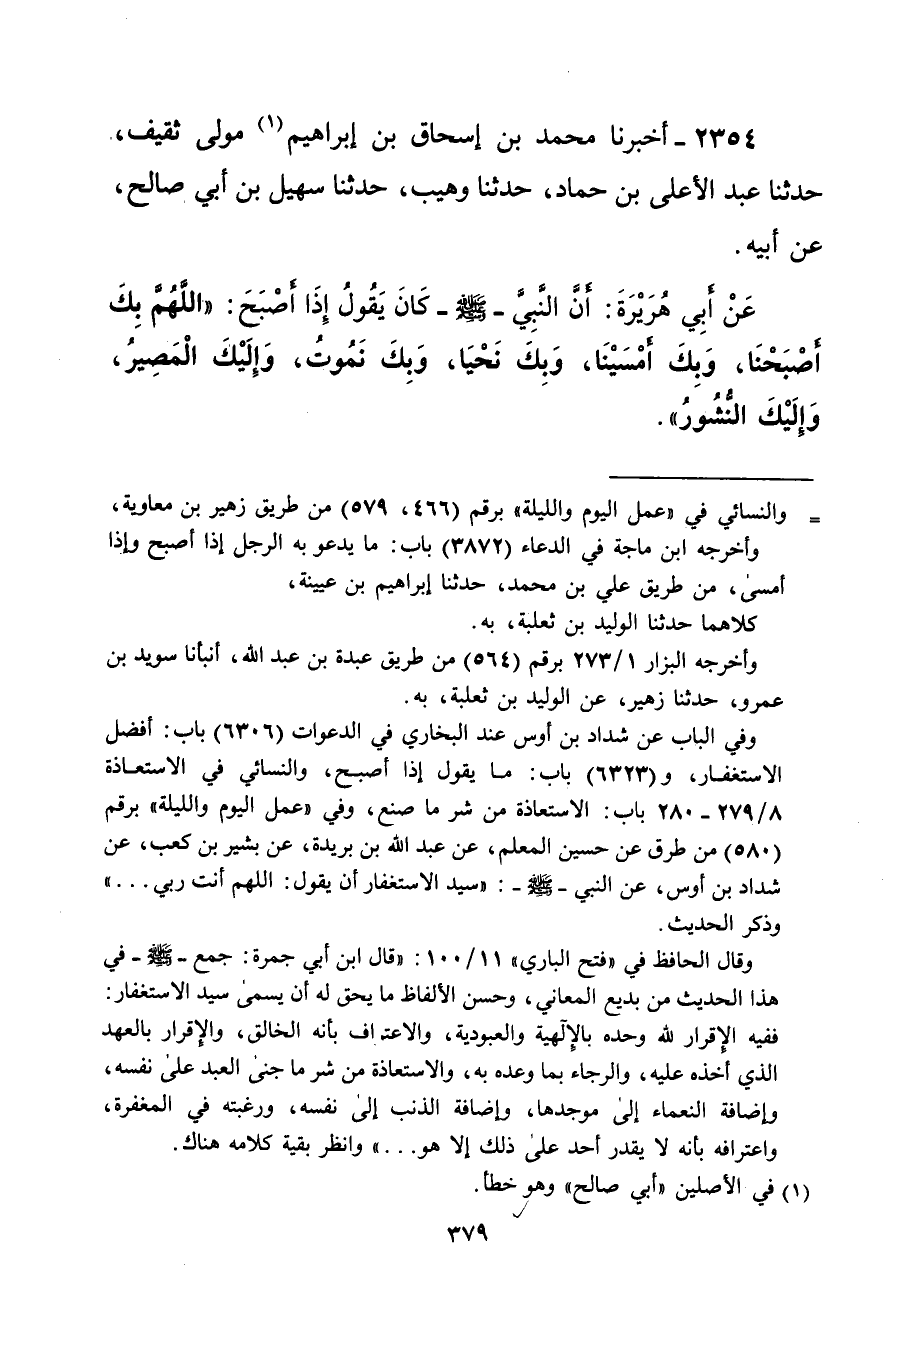 ٢٣٥٤ - أخبرنا محمد بن إسحاق بن إبراهيم(١) مولى ثقيف،
حدثنا عبد الأعلى بن حماد، حدثنا وهيب، حدثنا سهيل بن أبي صالح،
عن أبيه.
عَنْ أَبِي هُرَيْرَةَ: أَنَّ النَّبِيَّ - ﷺ - كَانَ يَقُولُ إِذَا أَصْبَحَ: «اللَّهُمَّ بِكَ
أَصْبَحْنَا، وَبِكَ أَمْسَيْنَا، وَبِكَ نَحْيَا، وَبِكَ نَمُوتُ، وَإِلَيْكَ الْمَصِيرُ،
وَإِلَيْكَ النُّشُورُ».
= والنسائي في «عمل اليوم والليلة» برقم (٤٦٦، ٥٧٩) من طريق زهير بن معاوية،
وأخرجه ابن ماجة في الدعاء (٣٨٧٢) باب: ما يدعو به الرجل إذا أصبح وإذا
أمسىٰ، من طريق علي بن محمد، حدثنا إبراهيم بن عيينة،
كلاهما حدثنا الوليد بن ثعلبة، به.
وأخرجه البزار ٢٧٣/١ برقم (٥٦٤) من طريق عبدة بن عبد الله، أنبأنا سويد بن
عمرو، حدثنا زهير، عن الوليد بن ثعلبة، به.
وفي الباب عن شداد بن أوس عند البخاري في الدعوات (٦٣٠٦) باب: أفضل
الاستغفار، و(٦٣٢٣) باب: ما يقول إذا أصبح، والنسائي في الاستعاذة
٢٧٩/٨ - ٢٨٠ باب: الاستعاذة من شر ما صنع، وفي «عمل اليوم والليلة» برقم
(٥٨٠) من طرق عن حسين المعلم، عن عبد الله بن بريدة، عن بشير بن كعب، عن
شداد بن أوس، عن النبي - ﷺ - : «سيد الاستغفار أن يقول: اللهم أنت ربي...»
وذكر الحديث.
وقال الحافظ في «فتح الباري» ١٠٠/١١: «قال ابن أبي جمرة: جمع - ﷺ - في
هذا الحديث من بديع المعاني، وحسن الألفاظ ما يحق له أن يسمىٰ سيد الاستغفار:
ففيه الإقرار لله وحده بالإلٓهية والعبودية، والاعتراف بأنه الخالق، والإقرار بالعهد
الذي أخذه عليه، والرجاء بما وعده به، والاستعاذة من شر ما جنىٰ العبد علىٰ نفسه،
وإضافة النعماء إلىٰ موجدها، وإضافة الذنب إلىٰ نفسه، ورغبته في المغفرة،
واعترافه بأنه لا يقدر أحد علىٰ ذلك إلا هو...» وانظر بقية كلامه هناك.
(١) في الأصلين «أبي صالح» وهو خطأ.
٣٧٩